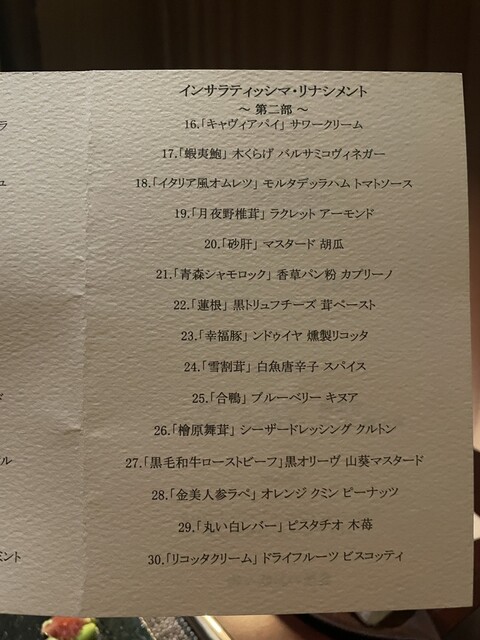 インサラティッシマ・リナシメント
～ 第二部 ～
16.｢キャヴィアパイ｣ サワークリーム
17.｢蝦夷鮑｣ 木くらげ バルサミコヴィネガー
18.｢イタリア風オムレツ｣ モルタデッラハム トマトソース
19.｢月夜野椎茸｣ ラクレット アーモンド
20.｢砂肝｣ マスタード 胡瓜
21.｢青森シャモロック｣ 香草パン粉 カプリーノ
22.｢蓮根｣ 黒トリュフチーズ 茸ペースト
23.｢幸福豚｣ ンドゥイヤ 燻製リコッタ
24.｢雪割茸｣ 白魚唐辛子 スパイス
25.｢合鴨｣ ブルーベリー キヌア
26.｢檜原舞茸｣ シーザードレッシング クルトン
27.｢黒毛和牛ローストビーフ｣ 黒オリーヴ 山葵マスタード
28.｢金美人参ラペ｣ オレンジ クミン ピーナッツ
29.｢丸い白レバー｣ ピスタチオ 木苺
30.｢リコッタクリーム｣ ドライフルーツ ビスコッティ